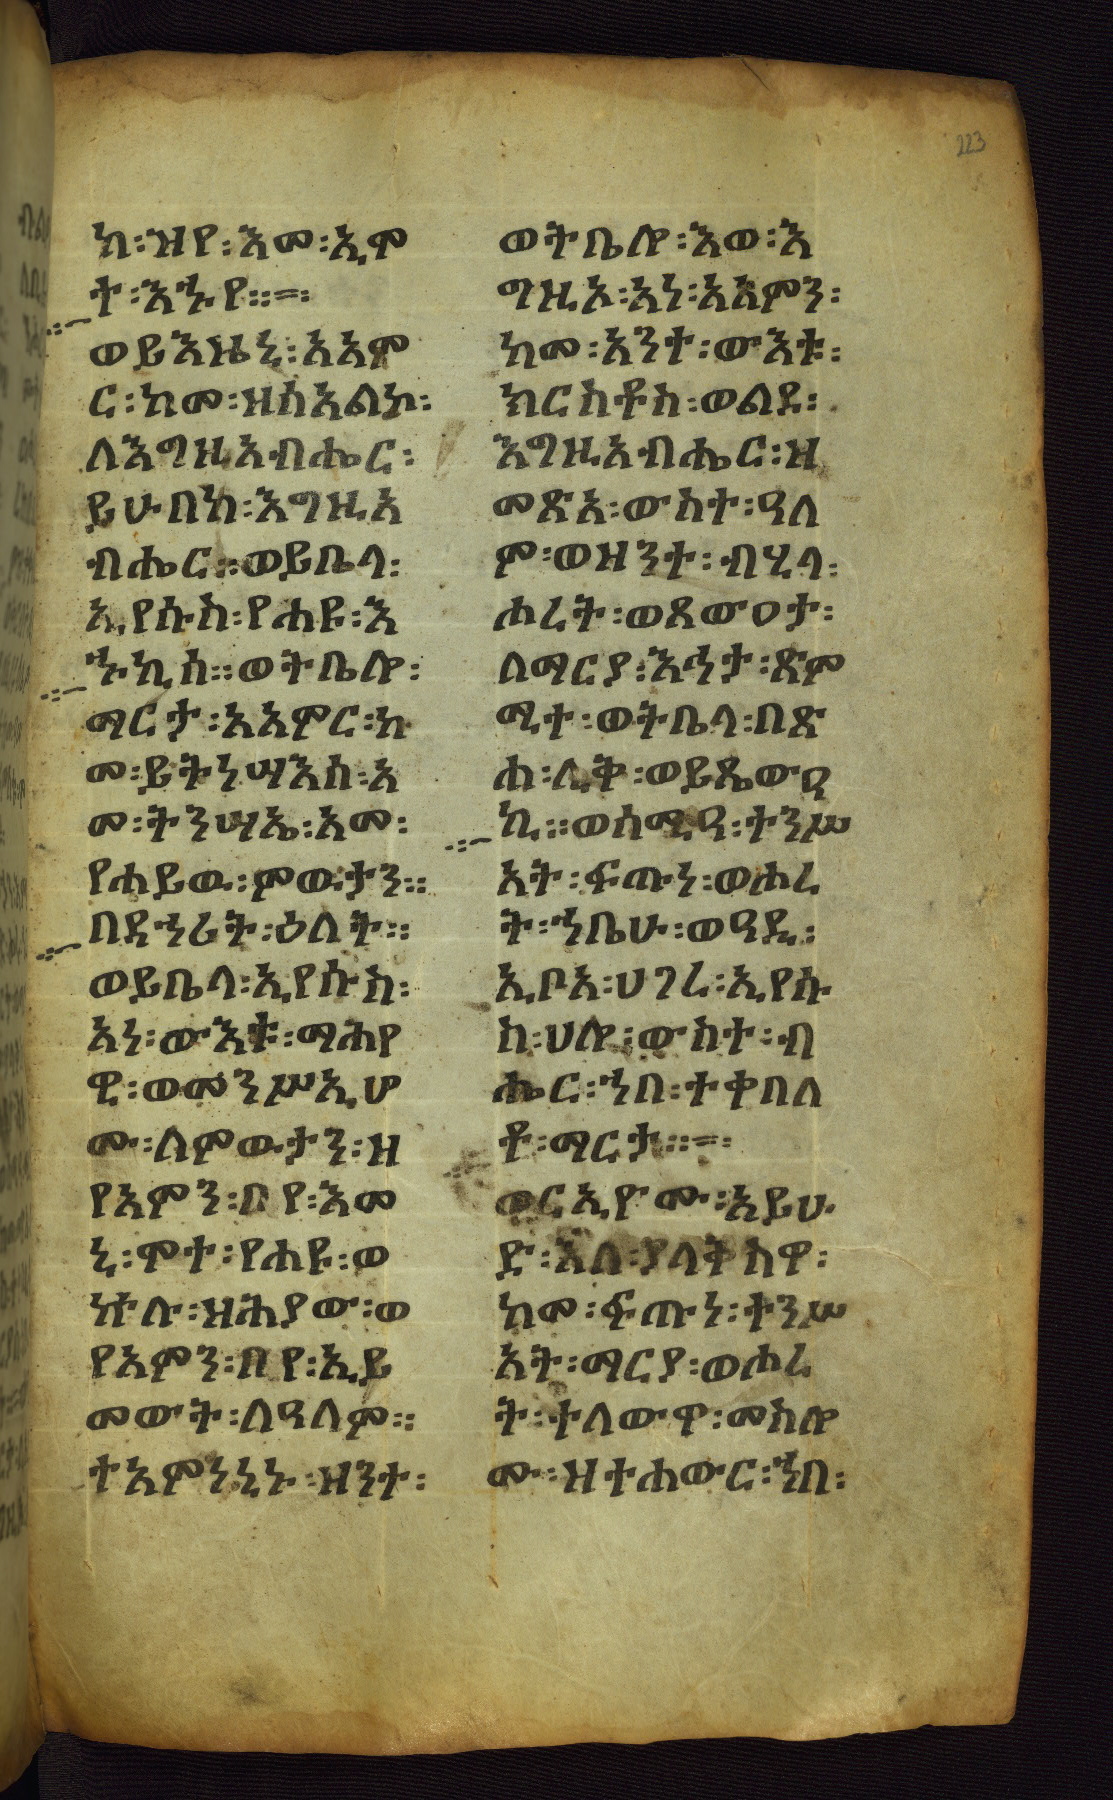 223
ከ፡ዝየ፡እመ፡ኢሞ
ተ፡እኁየ፡፡=፡
ወይእዜኒ፡አአም
ር፡ከመ፡ዝሰአልኮ፡
ለእግዚአብሔር፡
ይሁበከ፡እግዚአ
ብሔር፡፡ወይቤላ፡
ኢየሱስ፡የሐዩ፡እ
ኁኪሰ፡፡ወትቤሎ፡
ማርታ፡አአምር፡ከ
መ፡ይትነሣእሰ፡አ
መ፡ትንሣኤ፡አመ፡
የሐይዉ፡ምዉታን፡፡
በደኃሪት፡ዕለት፡፡
ወይቤላ፡ኢየሱስ፡
አነ፡ውእቱ፡ማሕየ
ዊ፡ወመንሥኢሆ
ሙ፡ለምዉታን፡ዘ
የአምን፡በየ፡እመ
ኒ፡ሞተ፡የሐዩ፡ወ
ኵሉ፡ዝሕያው፡ወ
የአምን፡በየ፡ኢይ
መውት፡ለዓለም፡፡
ተአምንኒኑ፡ዘንተ፡
ወትቤሎ፡እወ፡እ
ግዚኦ፡አነ፡አአምን፡
ከመ፡አንተ፡ውእቱ፡
ክርስቶስ፡ወልደ፡
እግዚአብሔር፡ዝ
መጽአ፡ውስተ፡ዓለ
ም፡ወዝንተ፡ብሂላ፡
ሐረት፡ወጸውዐታ፡
ለማርያ፡እኅታ፡ጽም
ሚተ፡ወትቤላ፡በጽ
ሐ፡ሊቅ፡ወይጼውዓ
ኪ፡፡ወሰሚዓ፡ተንሥ
አት፡ፍጡነ፡ወሐረ
ት፡ኀቤሁ፡ወዓዲ፡
ኢቦአ፡ሀገረ፡ኢየሱ
ስ፡ሀሎ፡ውስተ፡ብ
ሔር፡ኀበ፡ተቀበለ
ቶ፡ማርታ፡፡=፡
ወርኢዮሙ፡አይሁ
ድ፡እለ፡ያላቅስዋ፡
ከመ፡ፍጡነ፡ተንሥ
አት፡ማርያ፡ወሐረ
ት፡ተለውዋ፡መስሎ
ሙ፡ዝተሐውር፡ኀበ፡